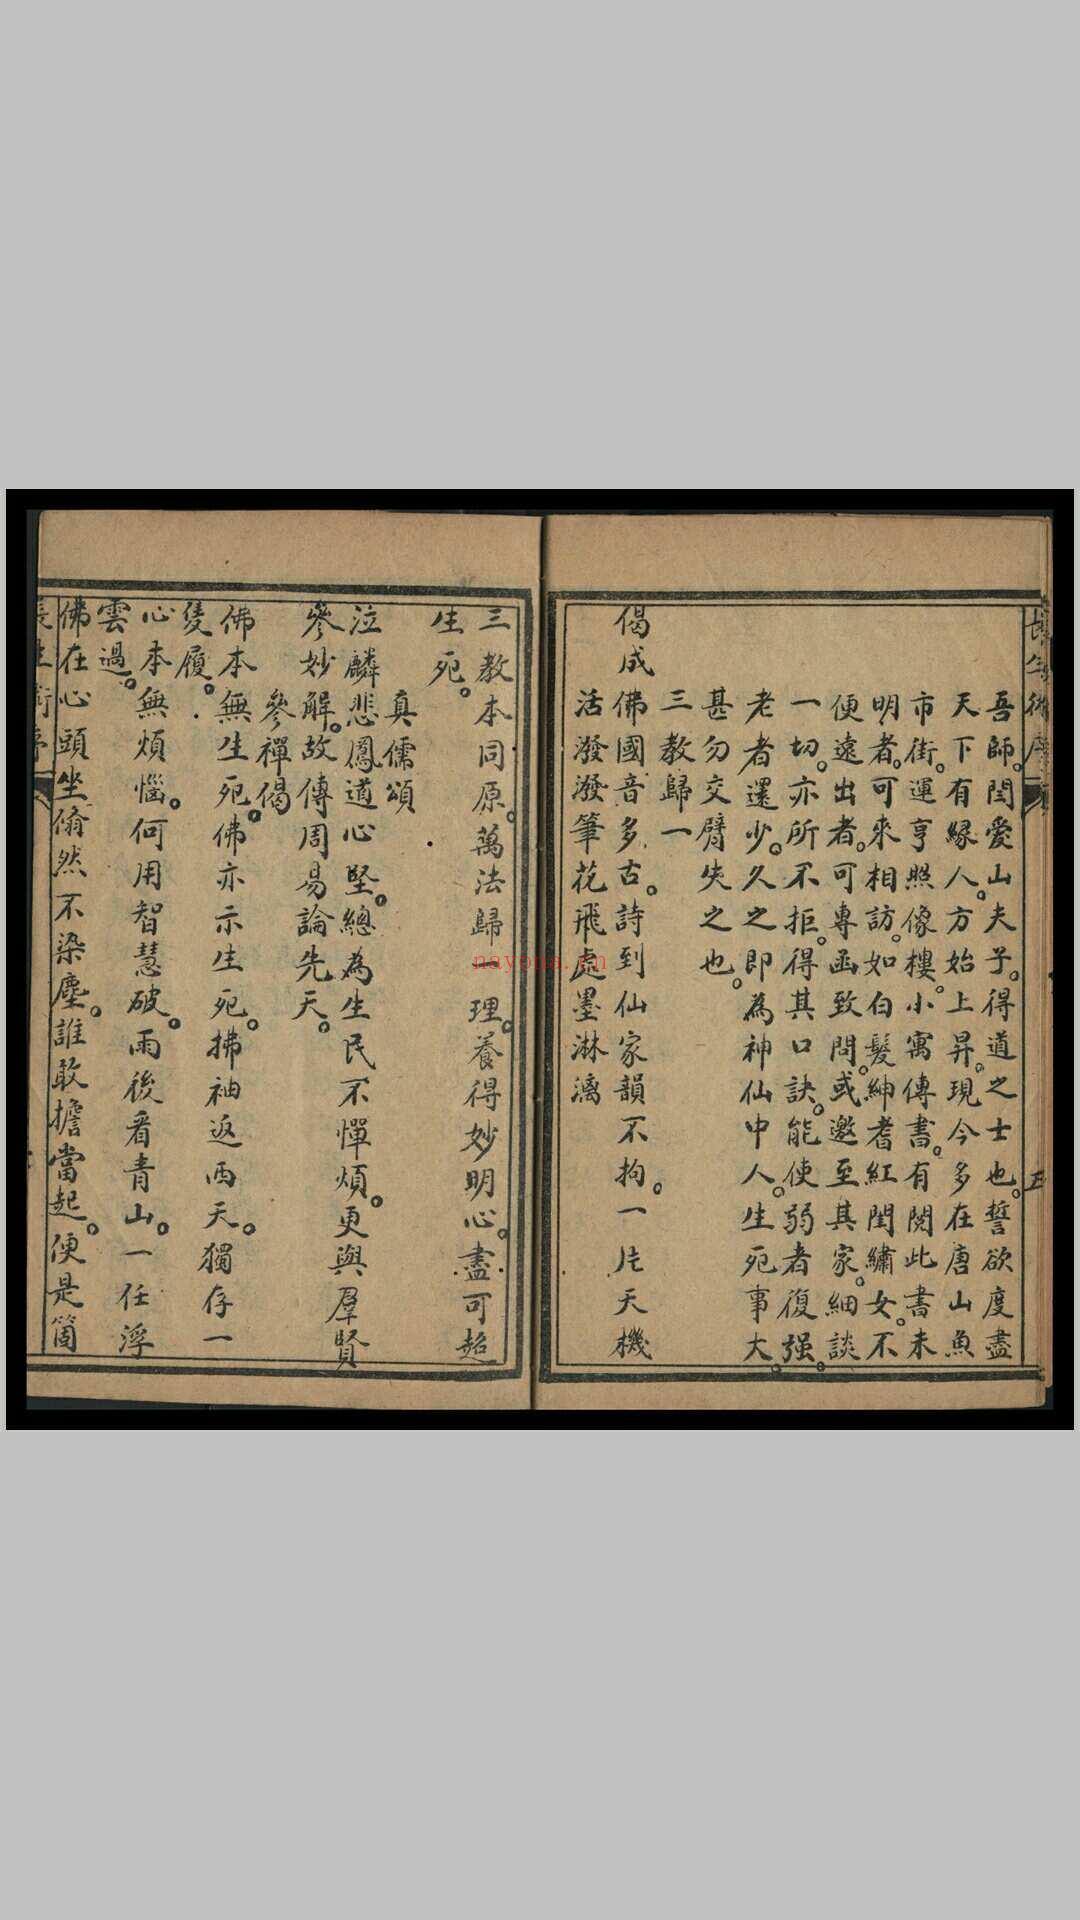 吾師。閏愛山夫子。得道之士也。誓欲度盡
天下有緣人。方始上昇。現今多在唐山魚
市街。運亨照像樓。小寓傳書。有閱此書未
明者。可來相訪。如白髮紳耆紅閨繡女。不
便遠出者。可專函致問。或邀至其家。細談
一切。亦所不拒。得其口訣。能使弱者復强。
老者還少。久之即為神仙中人。生死事大。
甚勿交臂失之也。
三教歸一
偈成佛國音多古。詩到仙家韻不拘。一片天機
活潑潑筆花飛處墨淋漓
三教本同原。萬法歸一理。養得妙明心。盡可超
生死。
真儒頌
泣麟悲鳳道心堅。總為生民不憚煩。更與羣賢
參妙解。故傳周易論先天。
參禪偈
佛本無生死。佛亦示生死。拂袖返西天。獨存一
隻履。
心本無煩惱。何用智慧破。雨後看青山。一任浮
雲過。
佛在心頭坐翛然不染塵。誰敢擔當起。便是箇
長生術序
nayona.cn